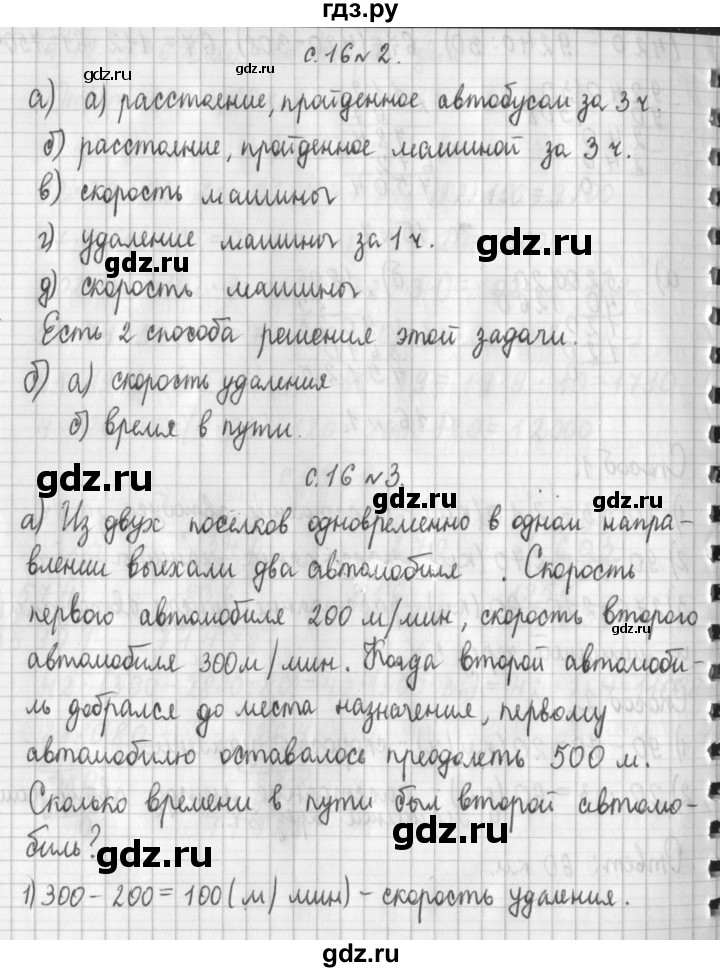 гдз.ру
с.16 № 2.
а) а) расстояние, пройденное автобусом за 3 ч.
б) расстояние, пройденное машиной за 3 ч.
в) скорость машины
г) удаление машины за 1 ч.
д) скорость машины
Есть 2 способа решения этой задачи.
б) а) скорость удаления
б) время в пути.
с.16 № 3.
а) Из двух посёлков одновременно в одном напра-
влении выехали два автомобиля . Скорость
первого автомобиля 200 м/мин, скорость второго
автомобиля 300м/мин. Когда второй автомоби-
ль добрался до места назначения, первому
автомобилю оставалось преодолеть 500 м.
Сколько времени в пути был второй автомо-
биль?
1) 300 - 200 = 100 (м/мин) - скорость удаления.
gdz.ru
gdz.ru
gdz.ru
gdz.ru
gdz.ru
gdz.ru
gdz.ru
gdz.ru
gdz.ru
gdz.ru
gdz.ru
gdz.ru